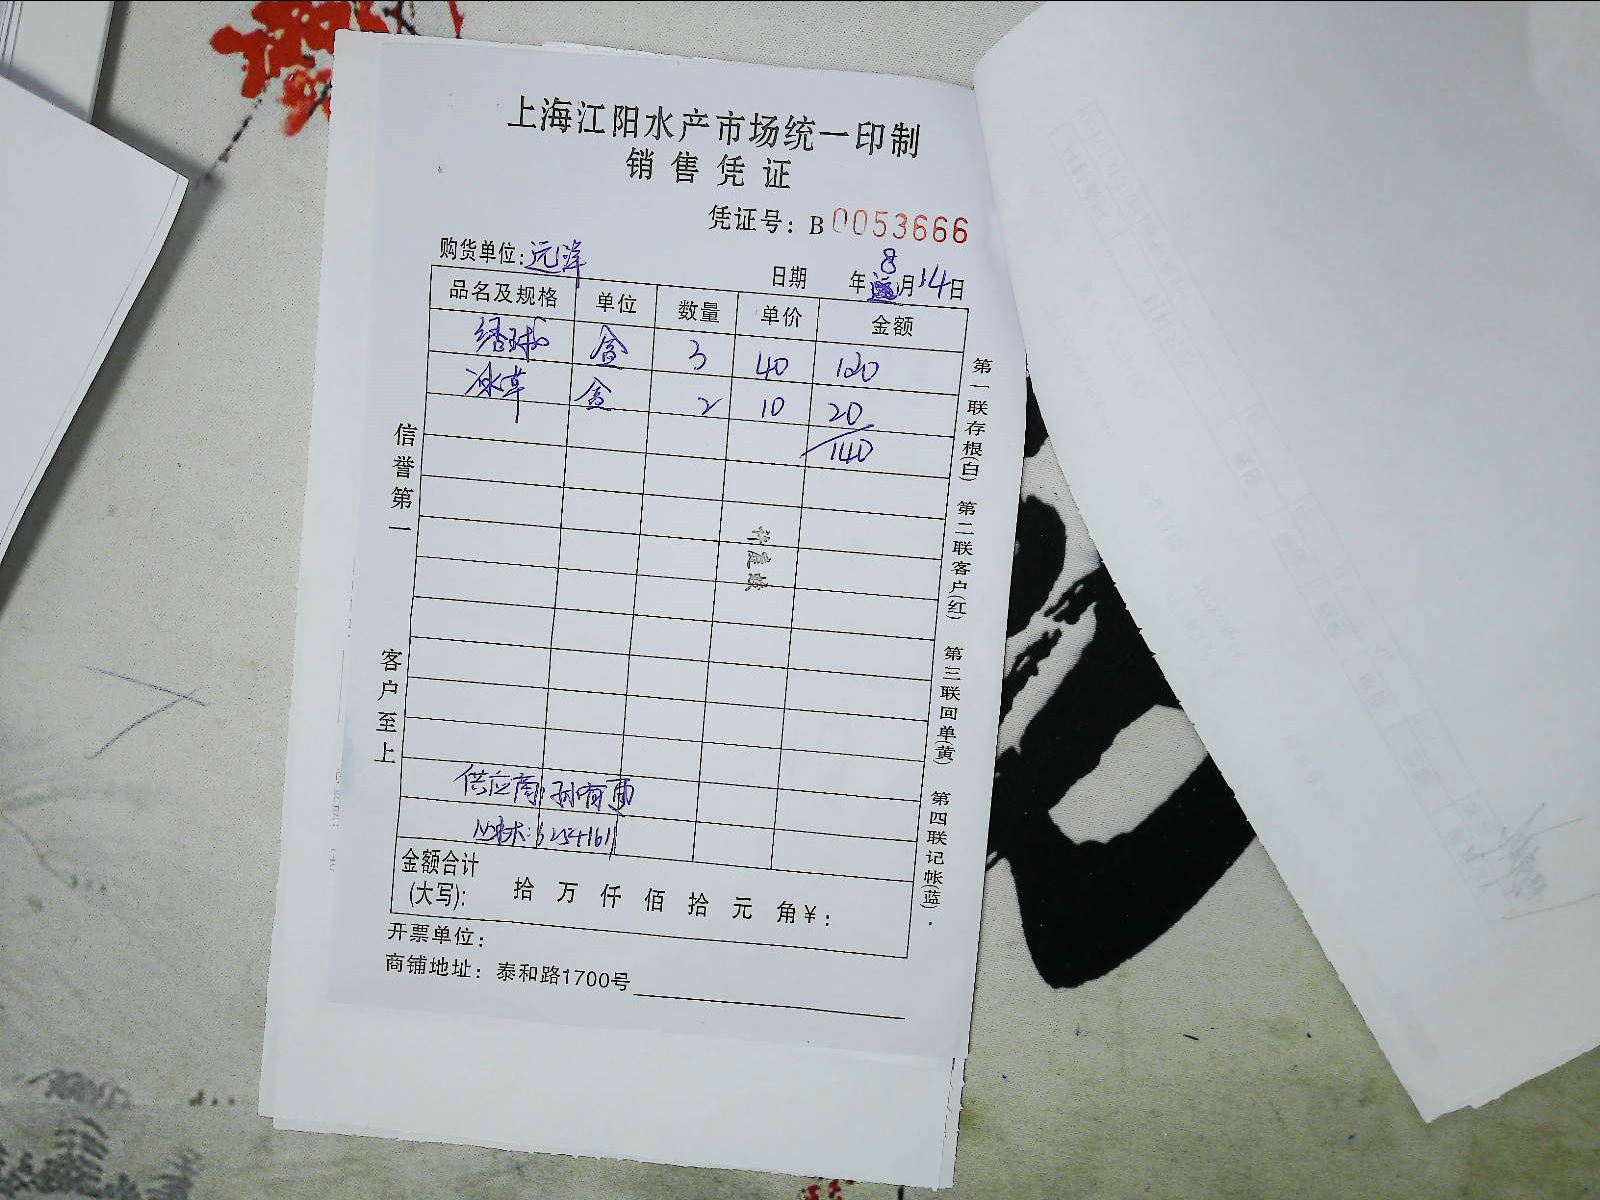 上海江阳水产市场统一印制
销售凭证
凭证号：B 0053666
购货单位：远洋
日期 年 8月14日
品名及规格 单位 数量 单价 金额
绣球 盒 3 40 120
冰草 盒 2 10 20
140
供应商 孙有
金额合计
(大写)： 拾 万 仟 佰 拾 元 角￥：
开票单位：
商铺地址：泰和路1700号
信誉第一
客户至上
第一联存根(白) 第二联客户(红) 第三联回单(黄) 第四联记帐(蓝)．